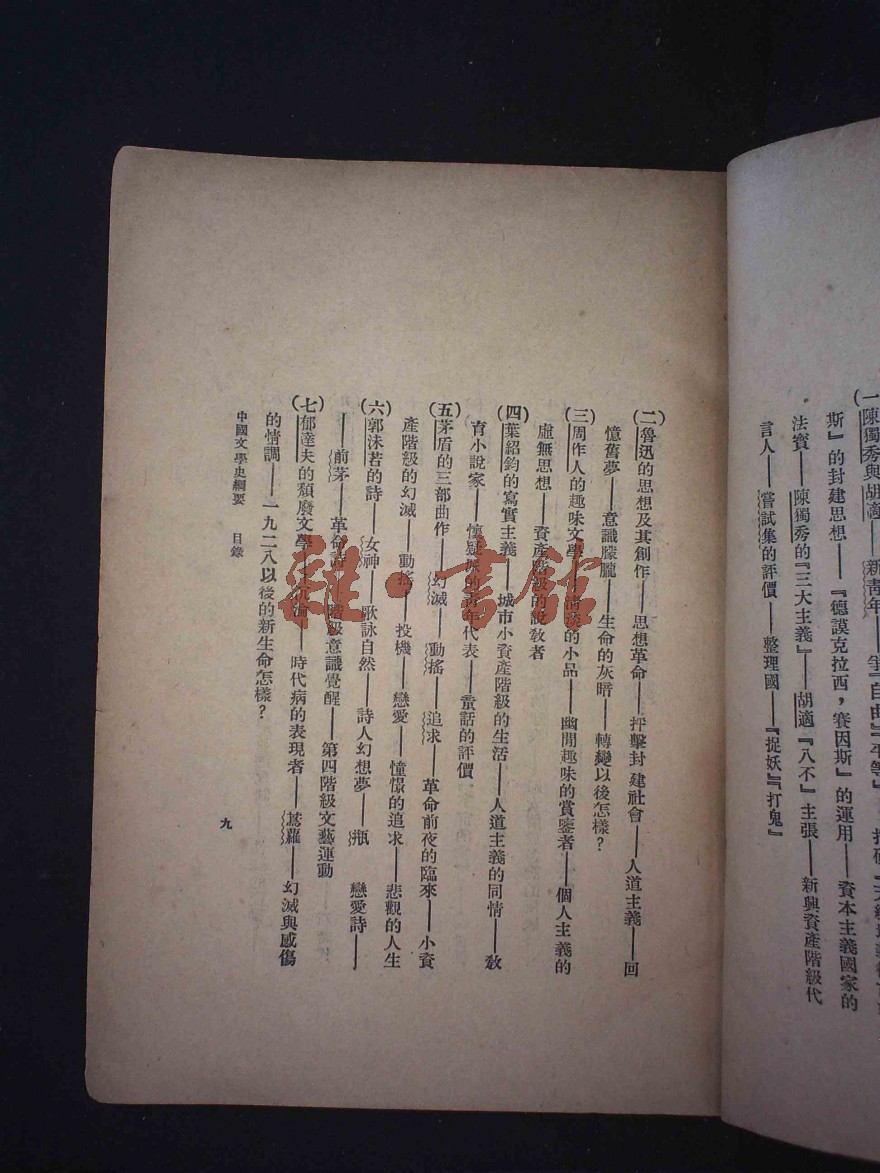 (一)陳獨秀與胡適——新青年——
斯』的封建思想——『德謨克拉西，賽因斯』的運用——資本主義國家的
法寶——陳獨秀的『三大主義』——胡適『八不』主張——新興資產階級代
言人——嘗試集的評價——整理國——『捉妖』『打鬼』
(二)魯迅的思想及其創作——思想革命——抨擊封建社會——人道主義——回
憶舊夢——意識朦朧——生命的灰暗——轉變以後怎樣？
(三)周作人的趣味文學——清淡的小品——幽閒趣味的賞鑒者——個人主義的
虛無思想——資產階級的說教者
(四)葉紹鈞的寫實主義——城市小資產階級的生活——人道主義的同情——教
育小說家——懷疑派的青年代表——童話的評價
(五)茅盾的三部曲作——幻滅——動搖——追求——革命前夜的臨來——小資
產階級的幻滅——動搖——投機——戀愛——憧憬的追求——悲觀的人生
(六)郭沫若的詩——女神——歌詠自然——詩人幻想夢——瓶　戀愛詩——
——前茅——革命詩——階級意識覺醒——第四階級文藝運動
(七)郁達夫的頹廢文學——沉淪——時代病的表現者——蔦蘿——幻滅與感傷
的情調——一九二八以後的新生命怎樣？
中國文學史綱要　目錄
九
雜·書館